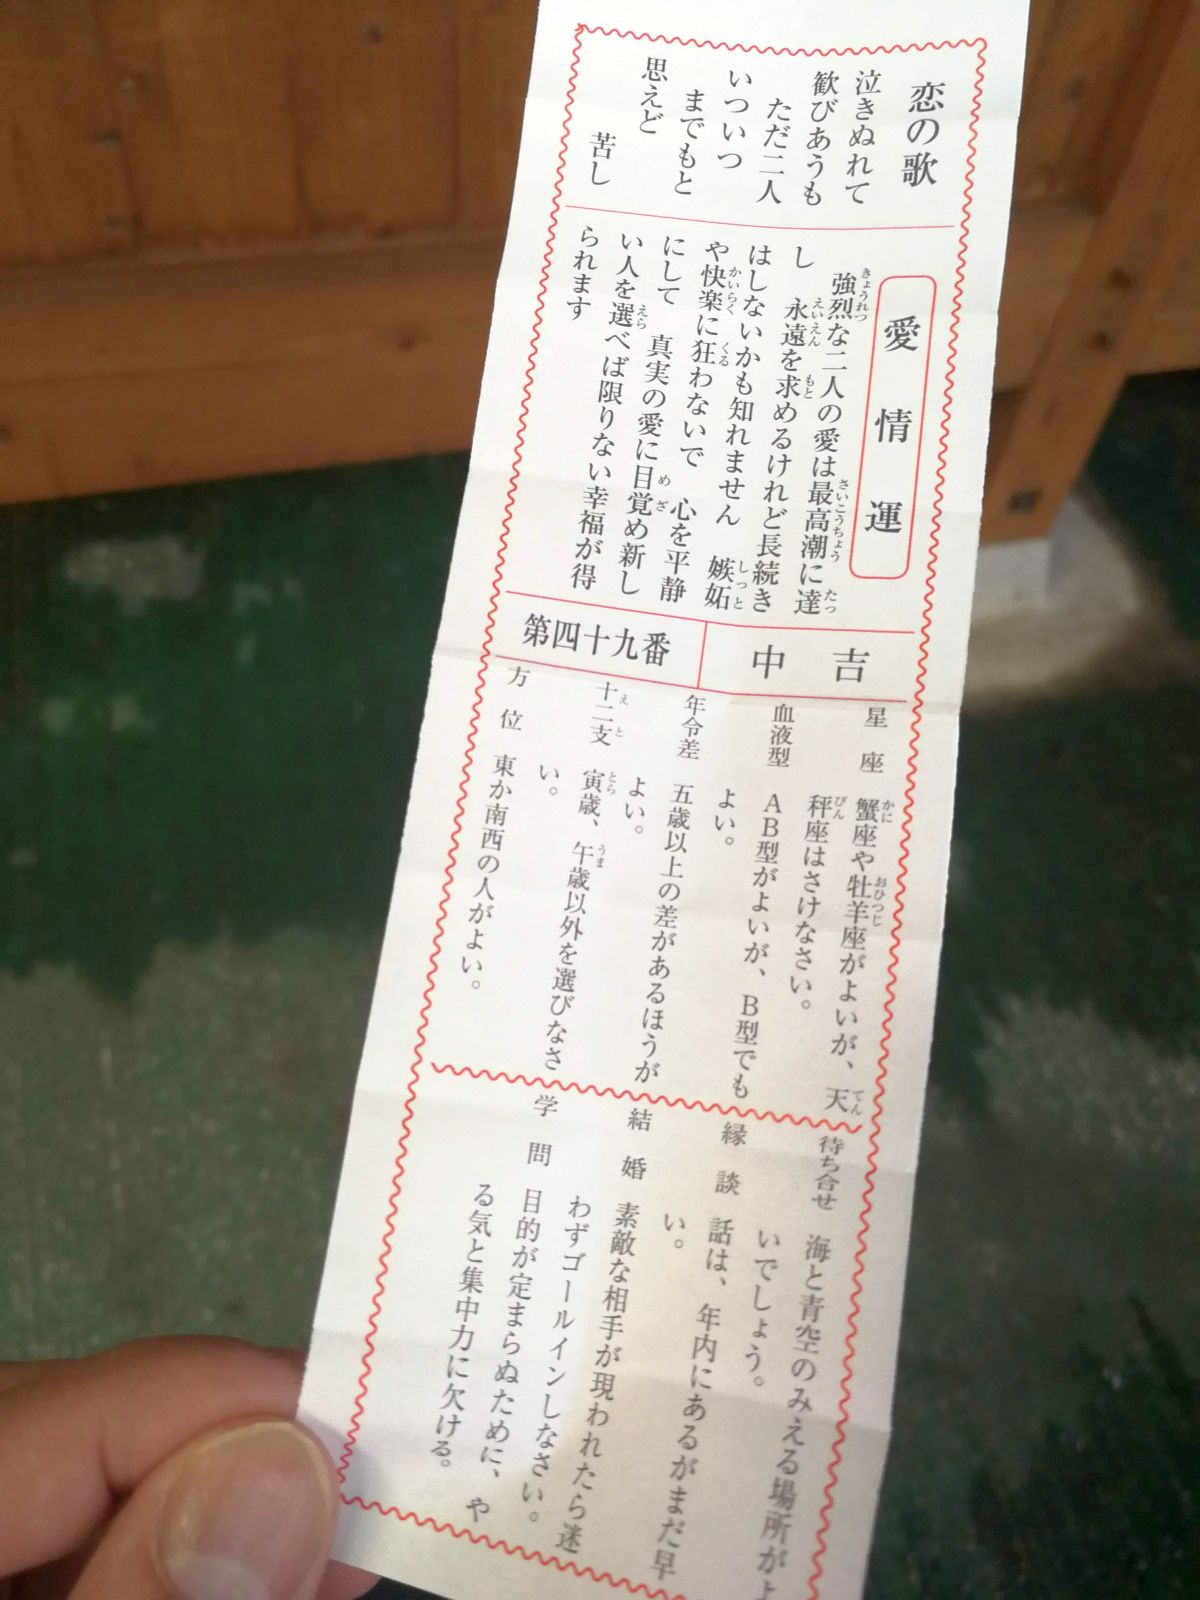 恋の歌
泣きぬれて
歓びあうも
ただ二人
いついつ
までもと
思えど
苦し
愛情運
強烈な二人の愛は最高潮に達
し　永遠を求めるけれど長続き
はしないかも知れません　嫉妬
や快楽に狂わないで　心を平静
にして　真実の愛に目覚め新し
い人を選べば限りない幸福が得
られます
中吉
第四十九番
星座　蟹座や牡羊座がよいが、天
秤座はさけなさい。
血液型　AB型がよいが、B型でも
よい。
年令差　五歳以上の差があるほうが
よい。
十二支　寅歳、午歳以外を選びなさ
い。
方位　東か南西の人がよい。
待ち合せ　海と青空のみえる場所がよ
いでしょう。
縁談　話は、年内にあるがまだ早
い。
結婚　素敵な相手が現われたら迷
わずゴールインしなさい。
学問　目的が定まらぬために、や
る気と集中力に欠ける。